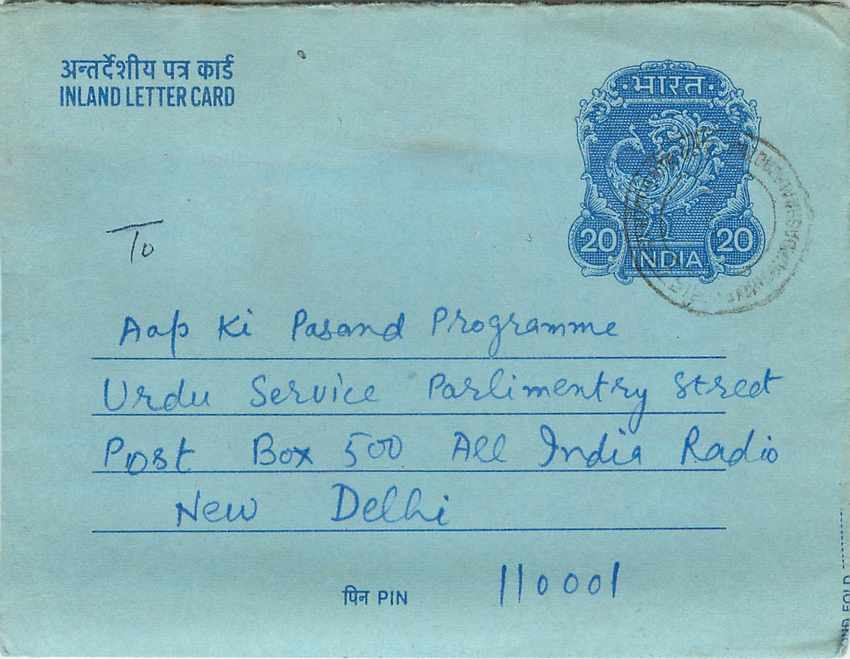 अन्तर्देशीय पत्र कार्ड
INLAND LETTER CARD
भारत
20 20
INDIA
To
Aap Ki Pasand Programme
Urdu Service Parlimentry Street
Post Box 500 All India Radio
New Delhi
पिन PIN 110001